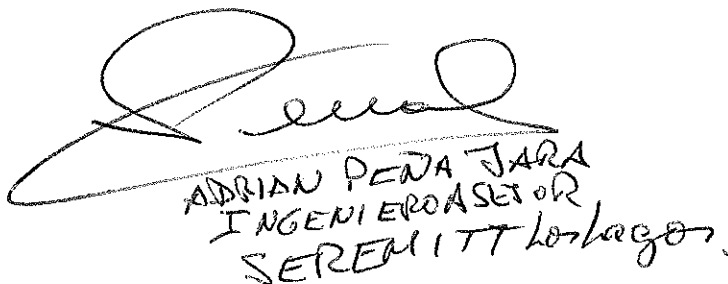 ADRIAN PEÑA JARA
INGENIERO ASESOR
SEREMITT Los Lagos